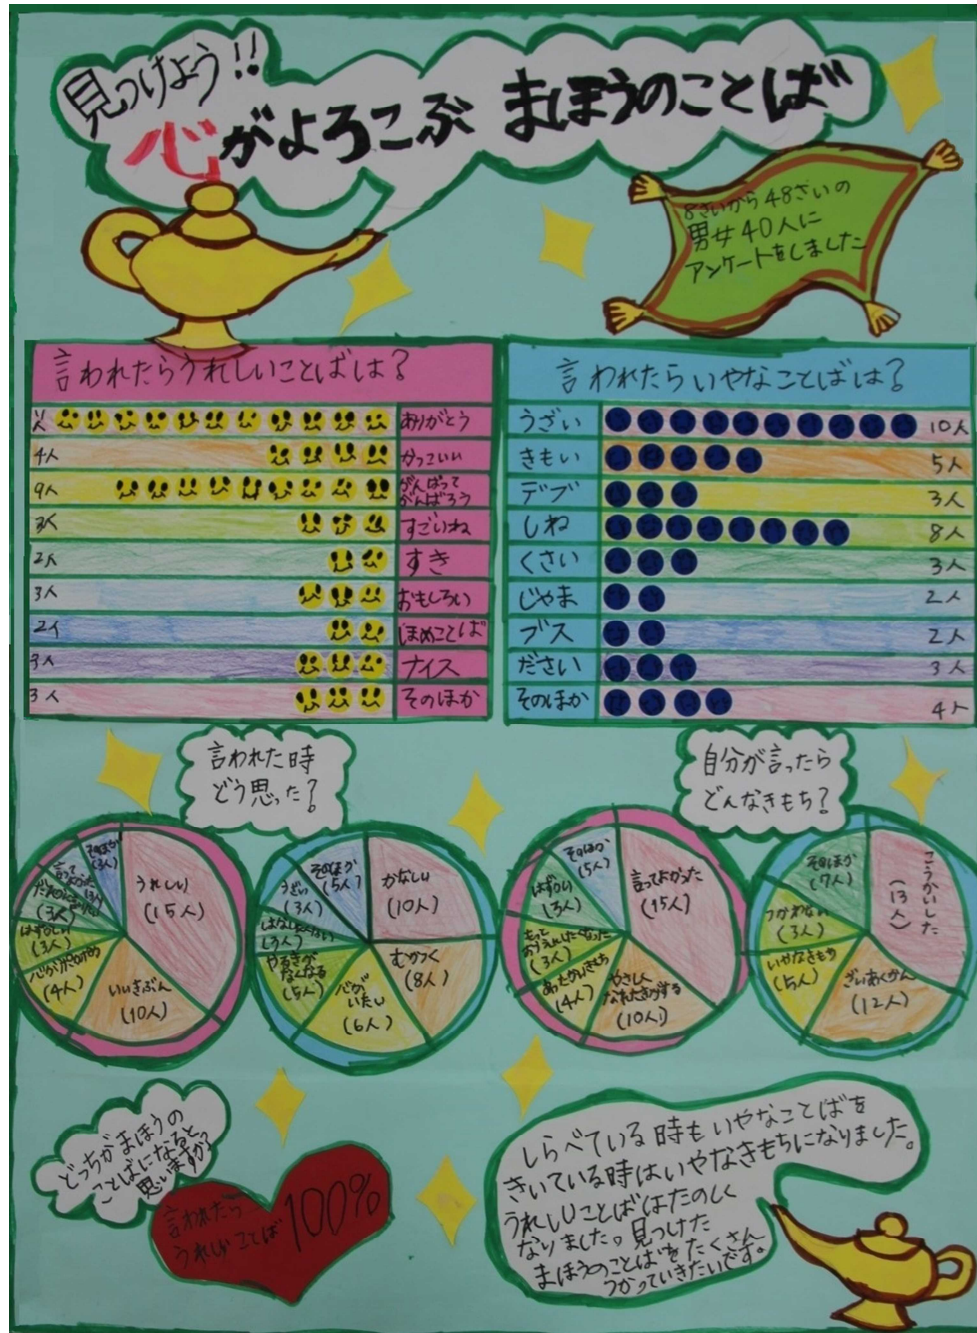 見つけよう!!
心がよろこぶ まほうのことば
8さいから48さいの
男女40人に
アンケートをしました
言われたらうれしいことばは?
ありがとう
4人 かっこいい
9人 がんばって
がんばろう
3人 すごいね
2人 すき
3人 おもしろい
2人 ほめことば
3人 ナイス
3人 そのほか
言われたらいやなことばは?
うざい 10人
きもい 5人
デブ 3人
しね 8人
くさい 3人
じゃま 2人
ブス 2人
ださい 3人
そのほか 4人
言われた時
どう思った?
うれしい
(15人)
いいきぶん
(10人)
(4人)
はずかしい
(3人)
(3人)
そのほか
(3人)
かなしい
(10人)
むかつく
(8人)
心が
いたい
(6人)
やるきが
なくなる
(5人)
はなしたくない
(3人)
うざい
(3人)
そのほか
(5人)
自分が言ったら
どんなきもち?
言ってよかった
(15人)
やさしく
なれたきがする
(10人)
あたたかいきもち
(4人)
もって
(3人)
はずかしい
(3人)
そのほか
(5人)
こうかいした
(13人)
ざいあくかん
(12人)
いけなきもち
(5人)
つかわない
(3人)
そのほか
(7人)
どっちがまほうの
ことばになると
思いますか?
言われたら
うれしいことば 100%
しらべている時もいやなことばを
きいている時はいやなきもちになりました。
うれしいことばはたのしく
なりました。見つけた
まほうのことばをたくさん
つかっていきたいです。